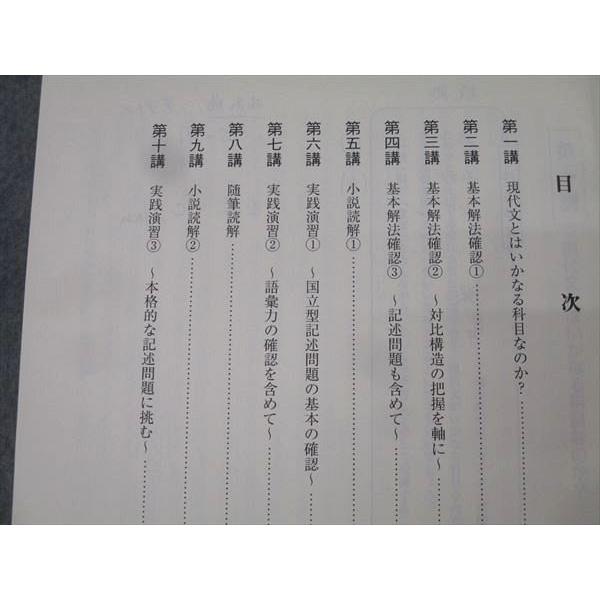 目次
第一講 現代文とはいかなる科目なのか?
第二講 基本解法確認①
第三講 基本解法確認② ~対比構造の把握を軸に~
第四講 基本解法確認③ ~記述問題も含めて~
第五講 小説読解①
第六講 実践演習① ~国立型記述問題の基本の確認~
第七講 実践演習② ~語彙力の確認を含めて~
第八講 随筆読解
第九講 小説読解②
第十講 実践演習③ ~本格的な記述問題に挑む~